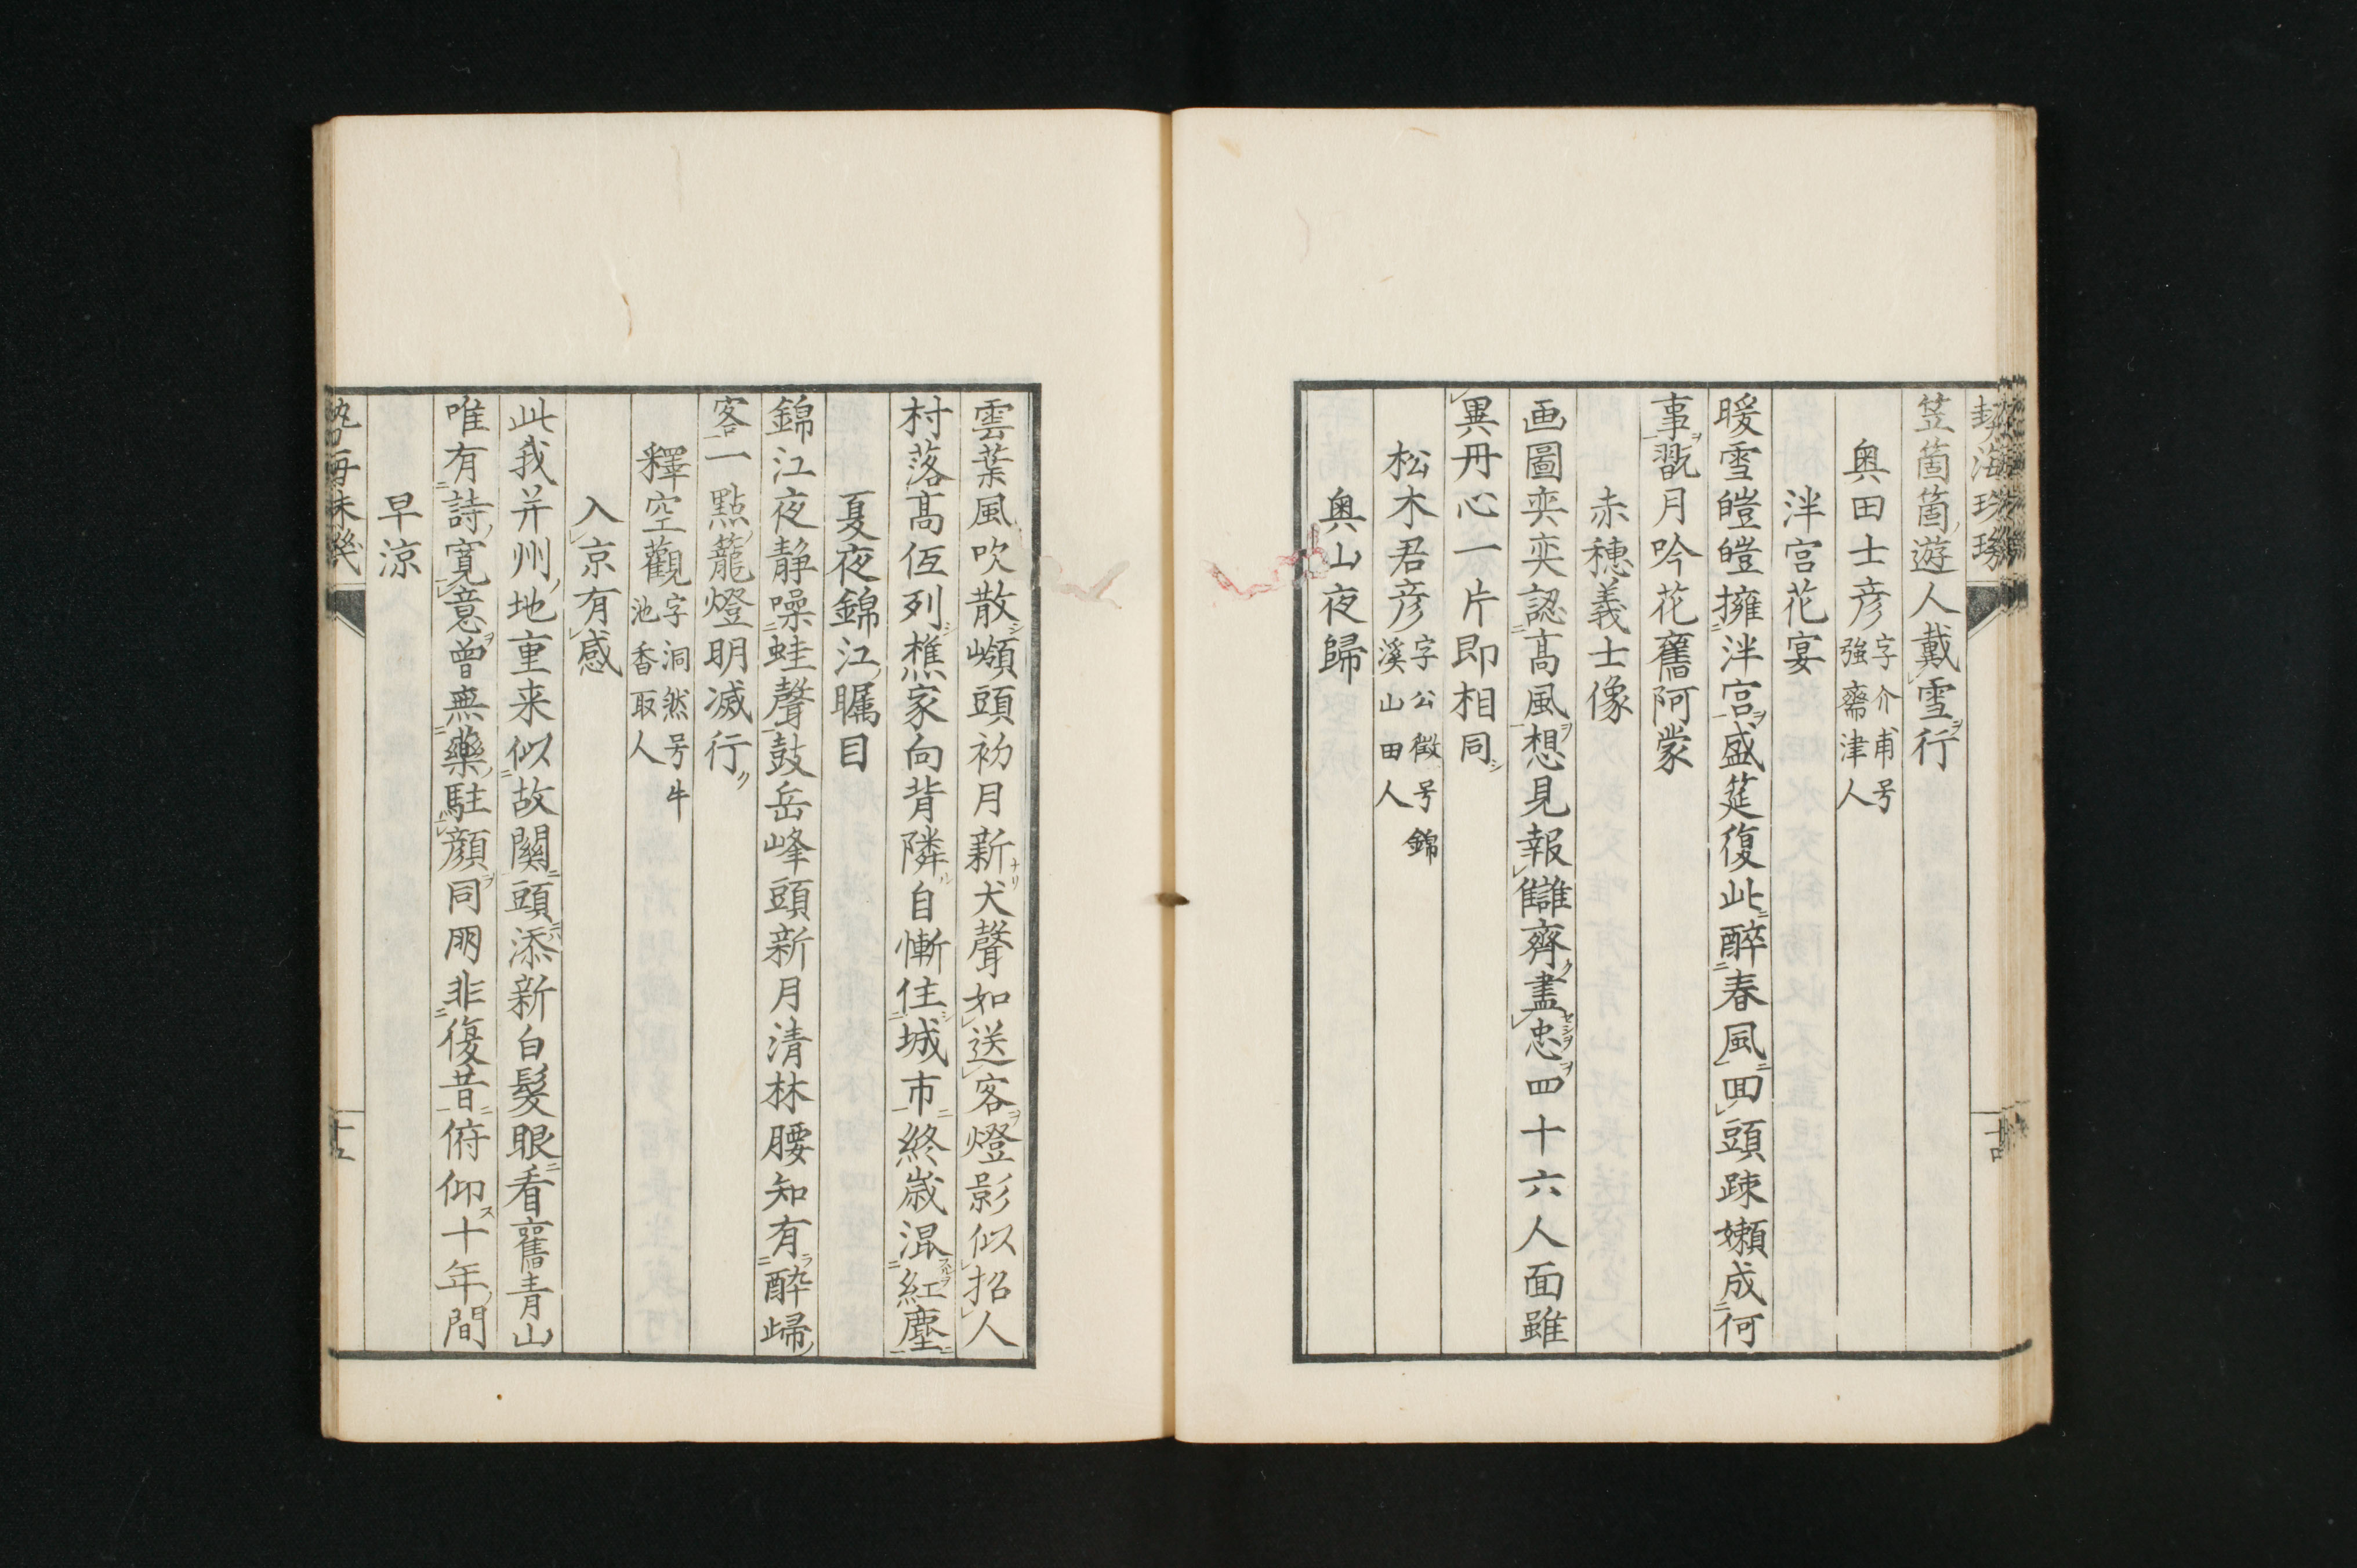 笠箇箇遊人戴雪行
奥田士彦 字介甫号強齋津人
泮宮花宴
暖雪皚皚擁泮宮盛筵復此醉春風囬頭踈嬾成何
事翫月吟花舊阿蒙
赤穗義士像
画圖奕奕認高風想見報讎齊盡忠四十六人面雖
異丹心一片即相同
松木君彦 字公徵号錦溪山田人
奥山夜歸
雲葉風吹散嶺頭初月新犬聲如送客燈影似招人
村落高低列樵家向背隣自慚住城市終歳混紅塵
夏夜錦江矚目
錦江夜静噪蛙聲鼓岳峰頭新月清林腰知有酔歸
客一點籠燈明滅行
釋空觀 字洞然号牛池香取人
入京有感
此我并州地重来似故關頭添新白髮眼看舊青山
唯有詩寛意曾無藥駐顔同朋非復昔俯仰十年間
早涼